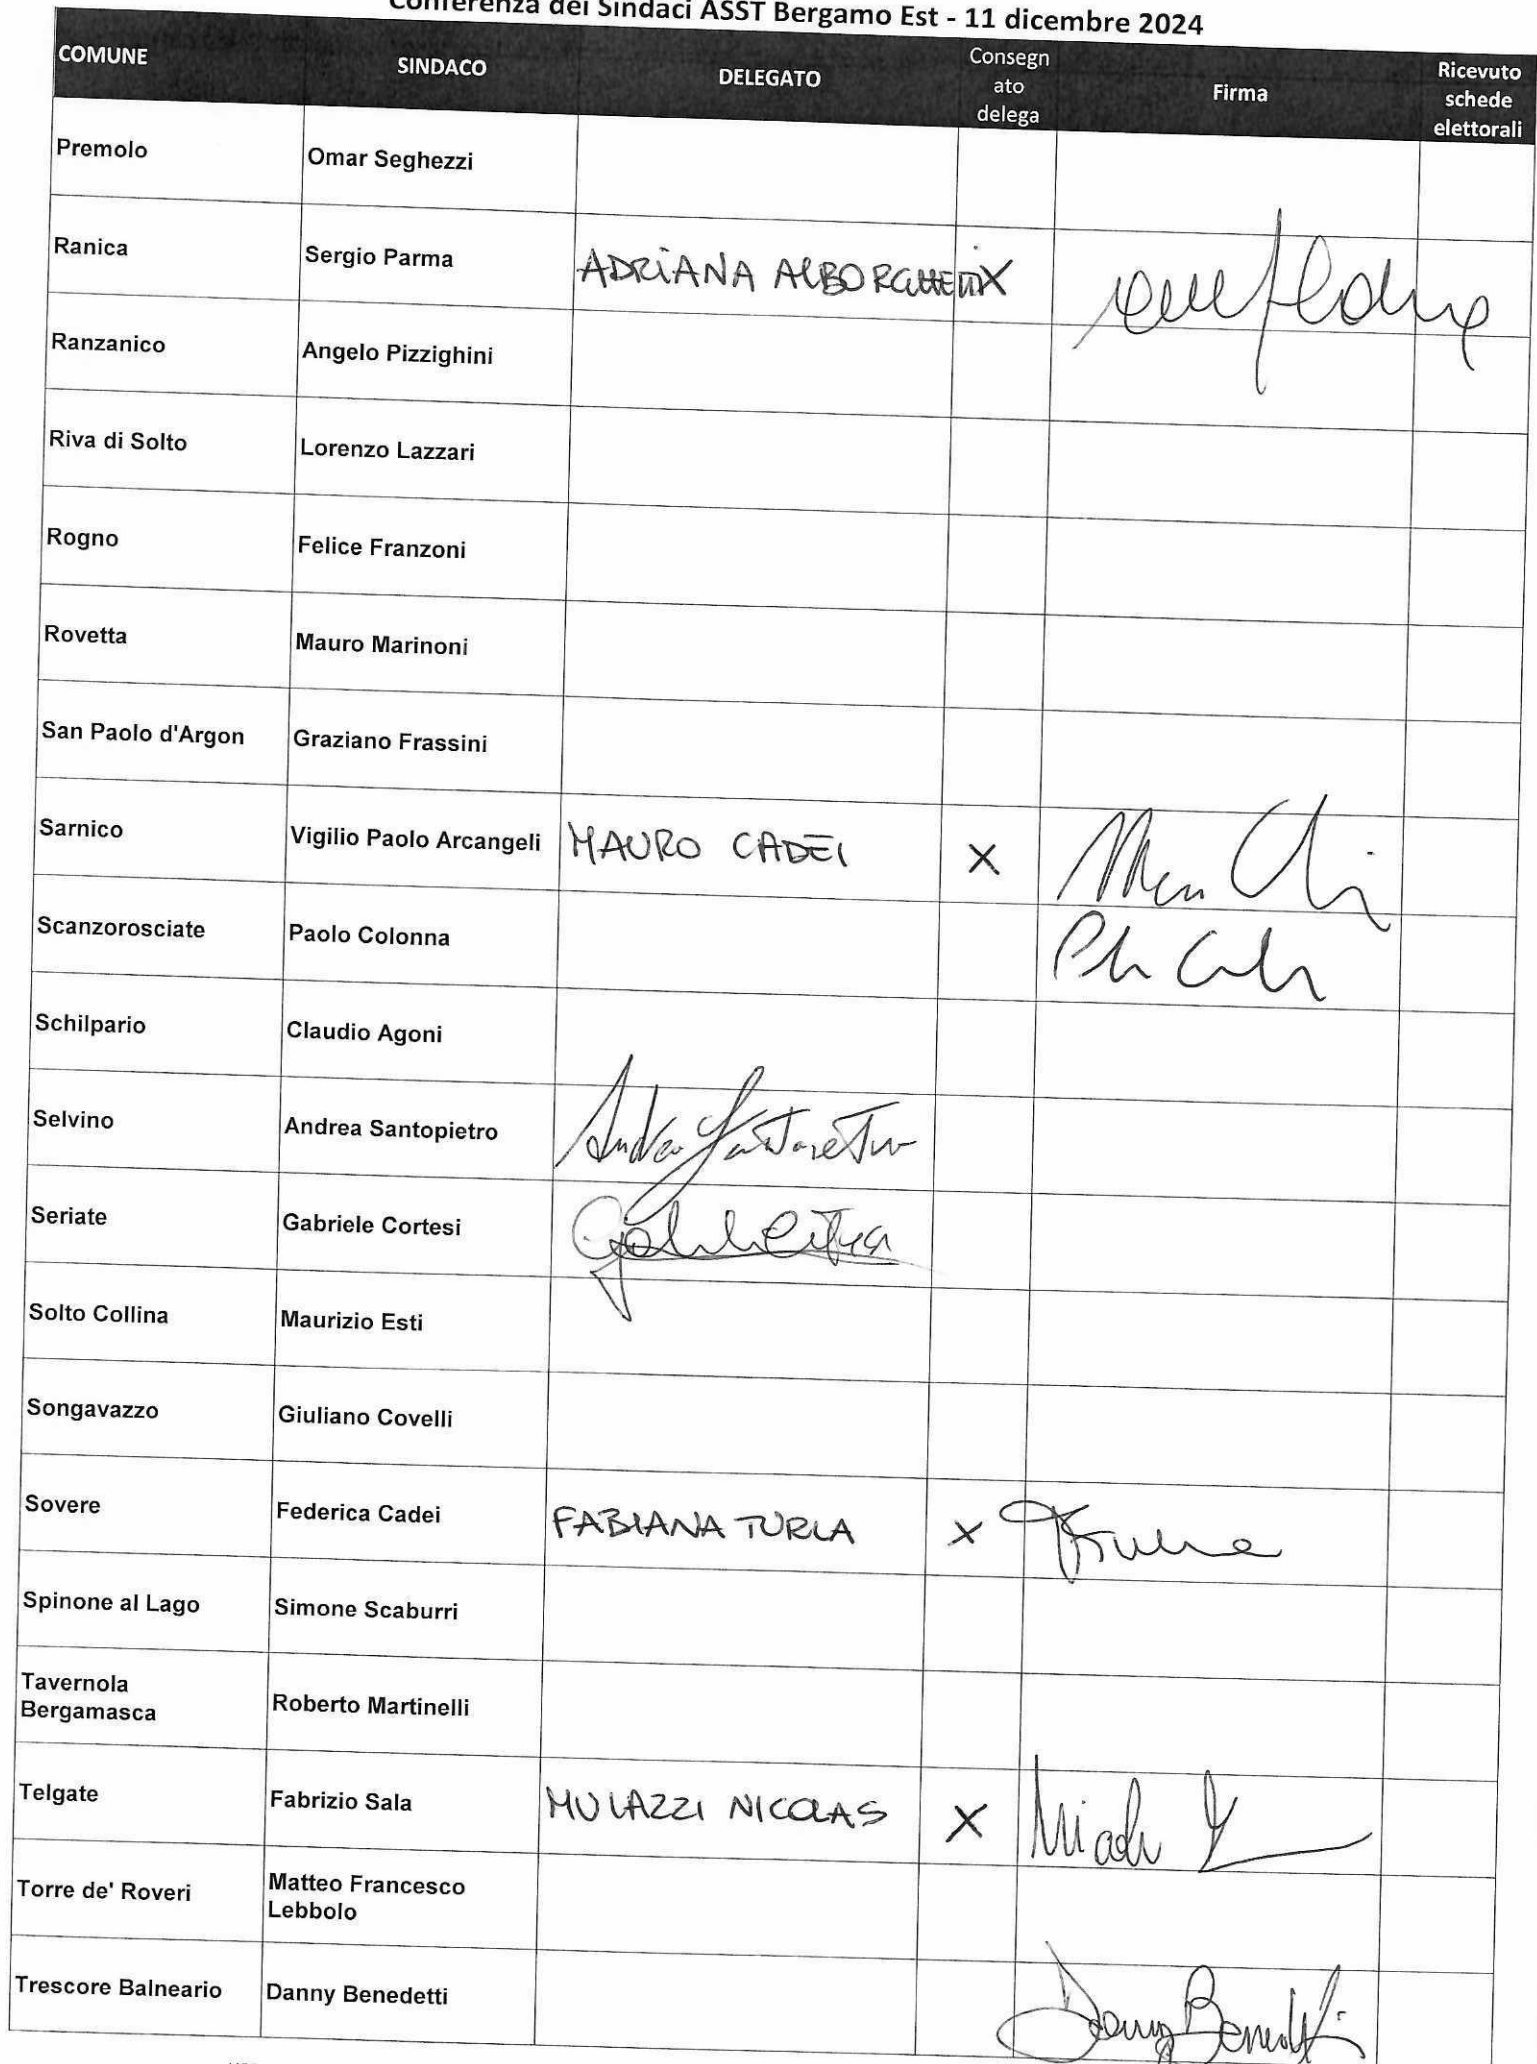 Conferenza dei Sindaci ASST Bergamo Est - 11 dicembre 2024
COMUNE SINDACO DELEGATO Consegn ato delega Firma Ricevuto schede elettorali
Premolo Omar Seghezzi
Ranica Sergio Parma ADRIANA ALBORGHETTI X
Ranzanico Angelo Pizzighini
Riva di Solto Lorenzo Lazzari
Rogno Felice Franzoni
Rovetta Mauro Marinoni
San Paolo d'Argon Graziano Frassini
Sarnico Vigilio Paolo Arcangeli MAURO CADEI X
Scanzorosciate Paolo Colonna
Schilpario Claudio Agoni
Selvino Andrea Santopietro Andrea Santopietro
Seriate Gabriele Cortesi
Solto Collina Maurizio Esti
Songavazzo Giuliano Covelli
Sovere Federica Cadei FABIANA TURLA X
Spinone al Lago Simone Scaburri
Tavernola Bergamasca Roberto Martinelli
Telgate Fabrizio Sala MULAZZI NICOLAS X
Torre de' Roveri Matteo Francesco Lebbolo
Trescore Balneario Danny Benedetti Danny Benedetti